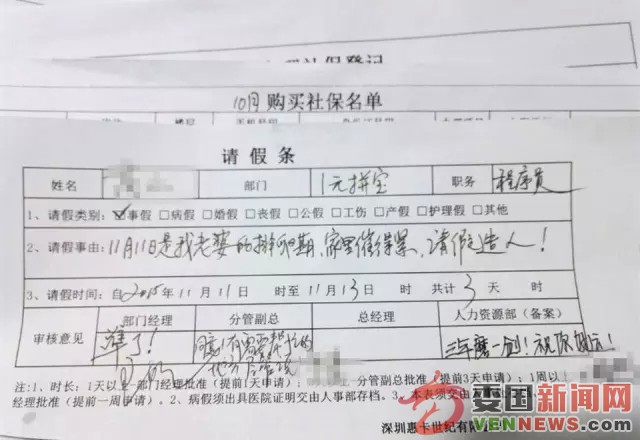 社保登记
10月购买社保名单
请假条
姓名 部门 1元拼宝 职务 程序员
1、请假类别：☑事假 □病假 □婚假 □丧假 □公假 □工伤 □产假 □护理假 □其他
2、请假事由：11月11日是我老婆的排卵期，家里催得紧，请假造人！
3、请假时间：自2015年11月11日 时至11月13日 时 共计3天 时
审核意见 部门经理 分管副总 总经理 人力资源部（备案）
准了！ 同意！有需要帮忙的 三年磨一剑！祝你成功！
地方尽管说
注：1、时长：1天以上部门经理批准（提前1天申请）； 分管副总批准（提前3天申请）；1周以
经理批准（提前一周申请）。2、病假须出具医院证明交由人事部存档。3、本表须交由
深圳惠卡世纪有限
麦国新闻网
VENNEWS.NET